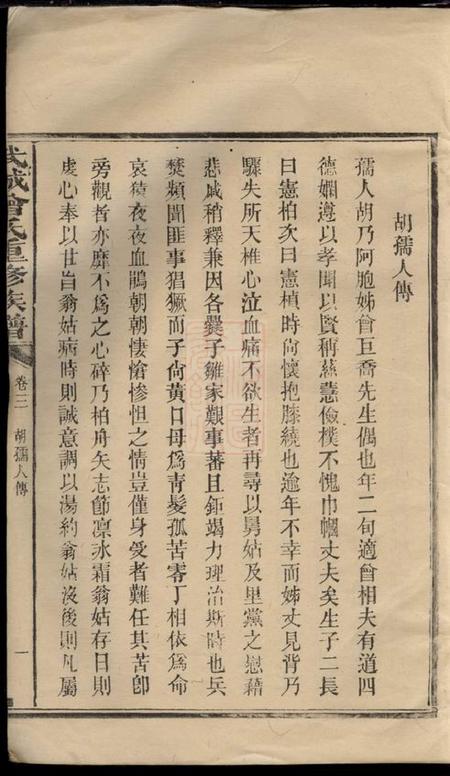 胡孺人傳
孺人胡乃阿胞姊曾巨喬先生偶也年二旬適曾相夫有道四
德嫻遵以孝聞以賢稱慈惠儉樸不愧巾幗丈夫矣生子二長
曰憲柏次曰憲楨時尙懷抱膝繞也逾年不幸而姊丈見背乃
驟失所天椎心泣血痛不欲生者再尋以舅姑及里黨之慰藉
悲戚稍釋兼因各爨子雛家艱事蕃且鉅竭力理治斯時也兵
燹頻聞匪事猖獗而子尙黃口母爲靑髮孤苦零丁相依爲命
哀猿夜夜血鵑朝朝悽愴慘怛之情豈僅身受者難任其苦卽
旁觀者亦靡不爲之心碎乃柏舟矢志節凛氷霜翁姑存日則
虔心奉以甘旨翁姑病時則誠意調以湯約翁姑沒後則凡屬
武城曾氏重修族譜
卷三
胡孺人傳
一